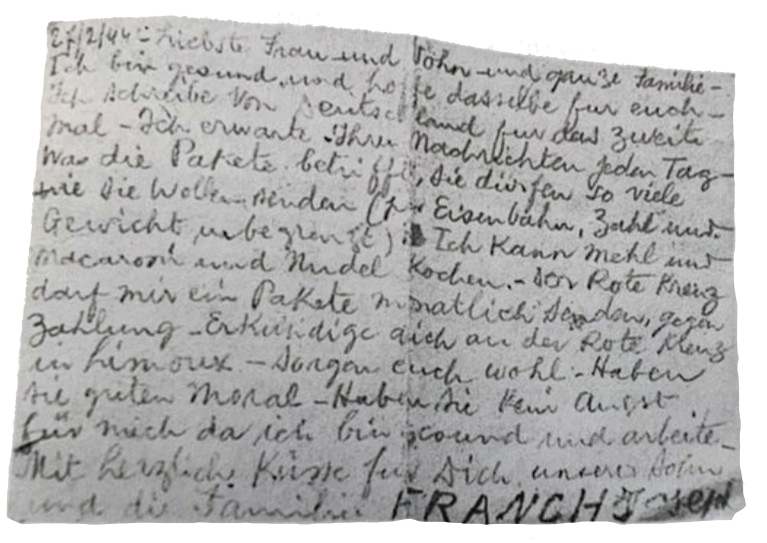 27/2/44 - Liebste Frau und Sohn und ganze Familie -
Ich bin gesund und hoffe dasselbe fur euch -
Ich schreibe von Deutschland fur das zweite
mal - Ich erwarte Ihre Nachrichten jeden Tag -
Was die Pakete betrifft, Sie dürfen so viele
wie Sie wollen senden (per Eisenbahn, Zahl und
Gewicht unbegrenzt) Ich Kann mehl und
macaroni und Nudel Kochen. - Der Rote Kreuz
darf mir ein Pakete monatlich senden, gegen
Zahlung - Erkündige dich an der Rote Kreuz
in Limoux - Sorgen euch wohl - Haben
sie guten Moral - Haben Sie Kein Angst
für mich da ich bin gesund und arbeite -
Mit herzliche Küsse fur Dich unsere Sohn
und die Familie FRANCH Josep